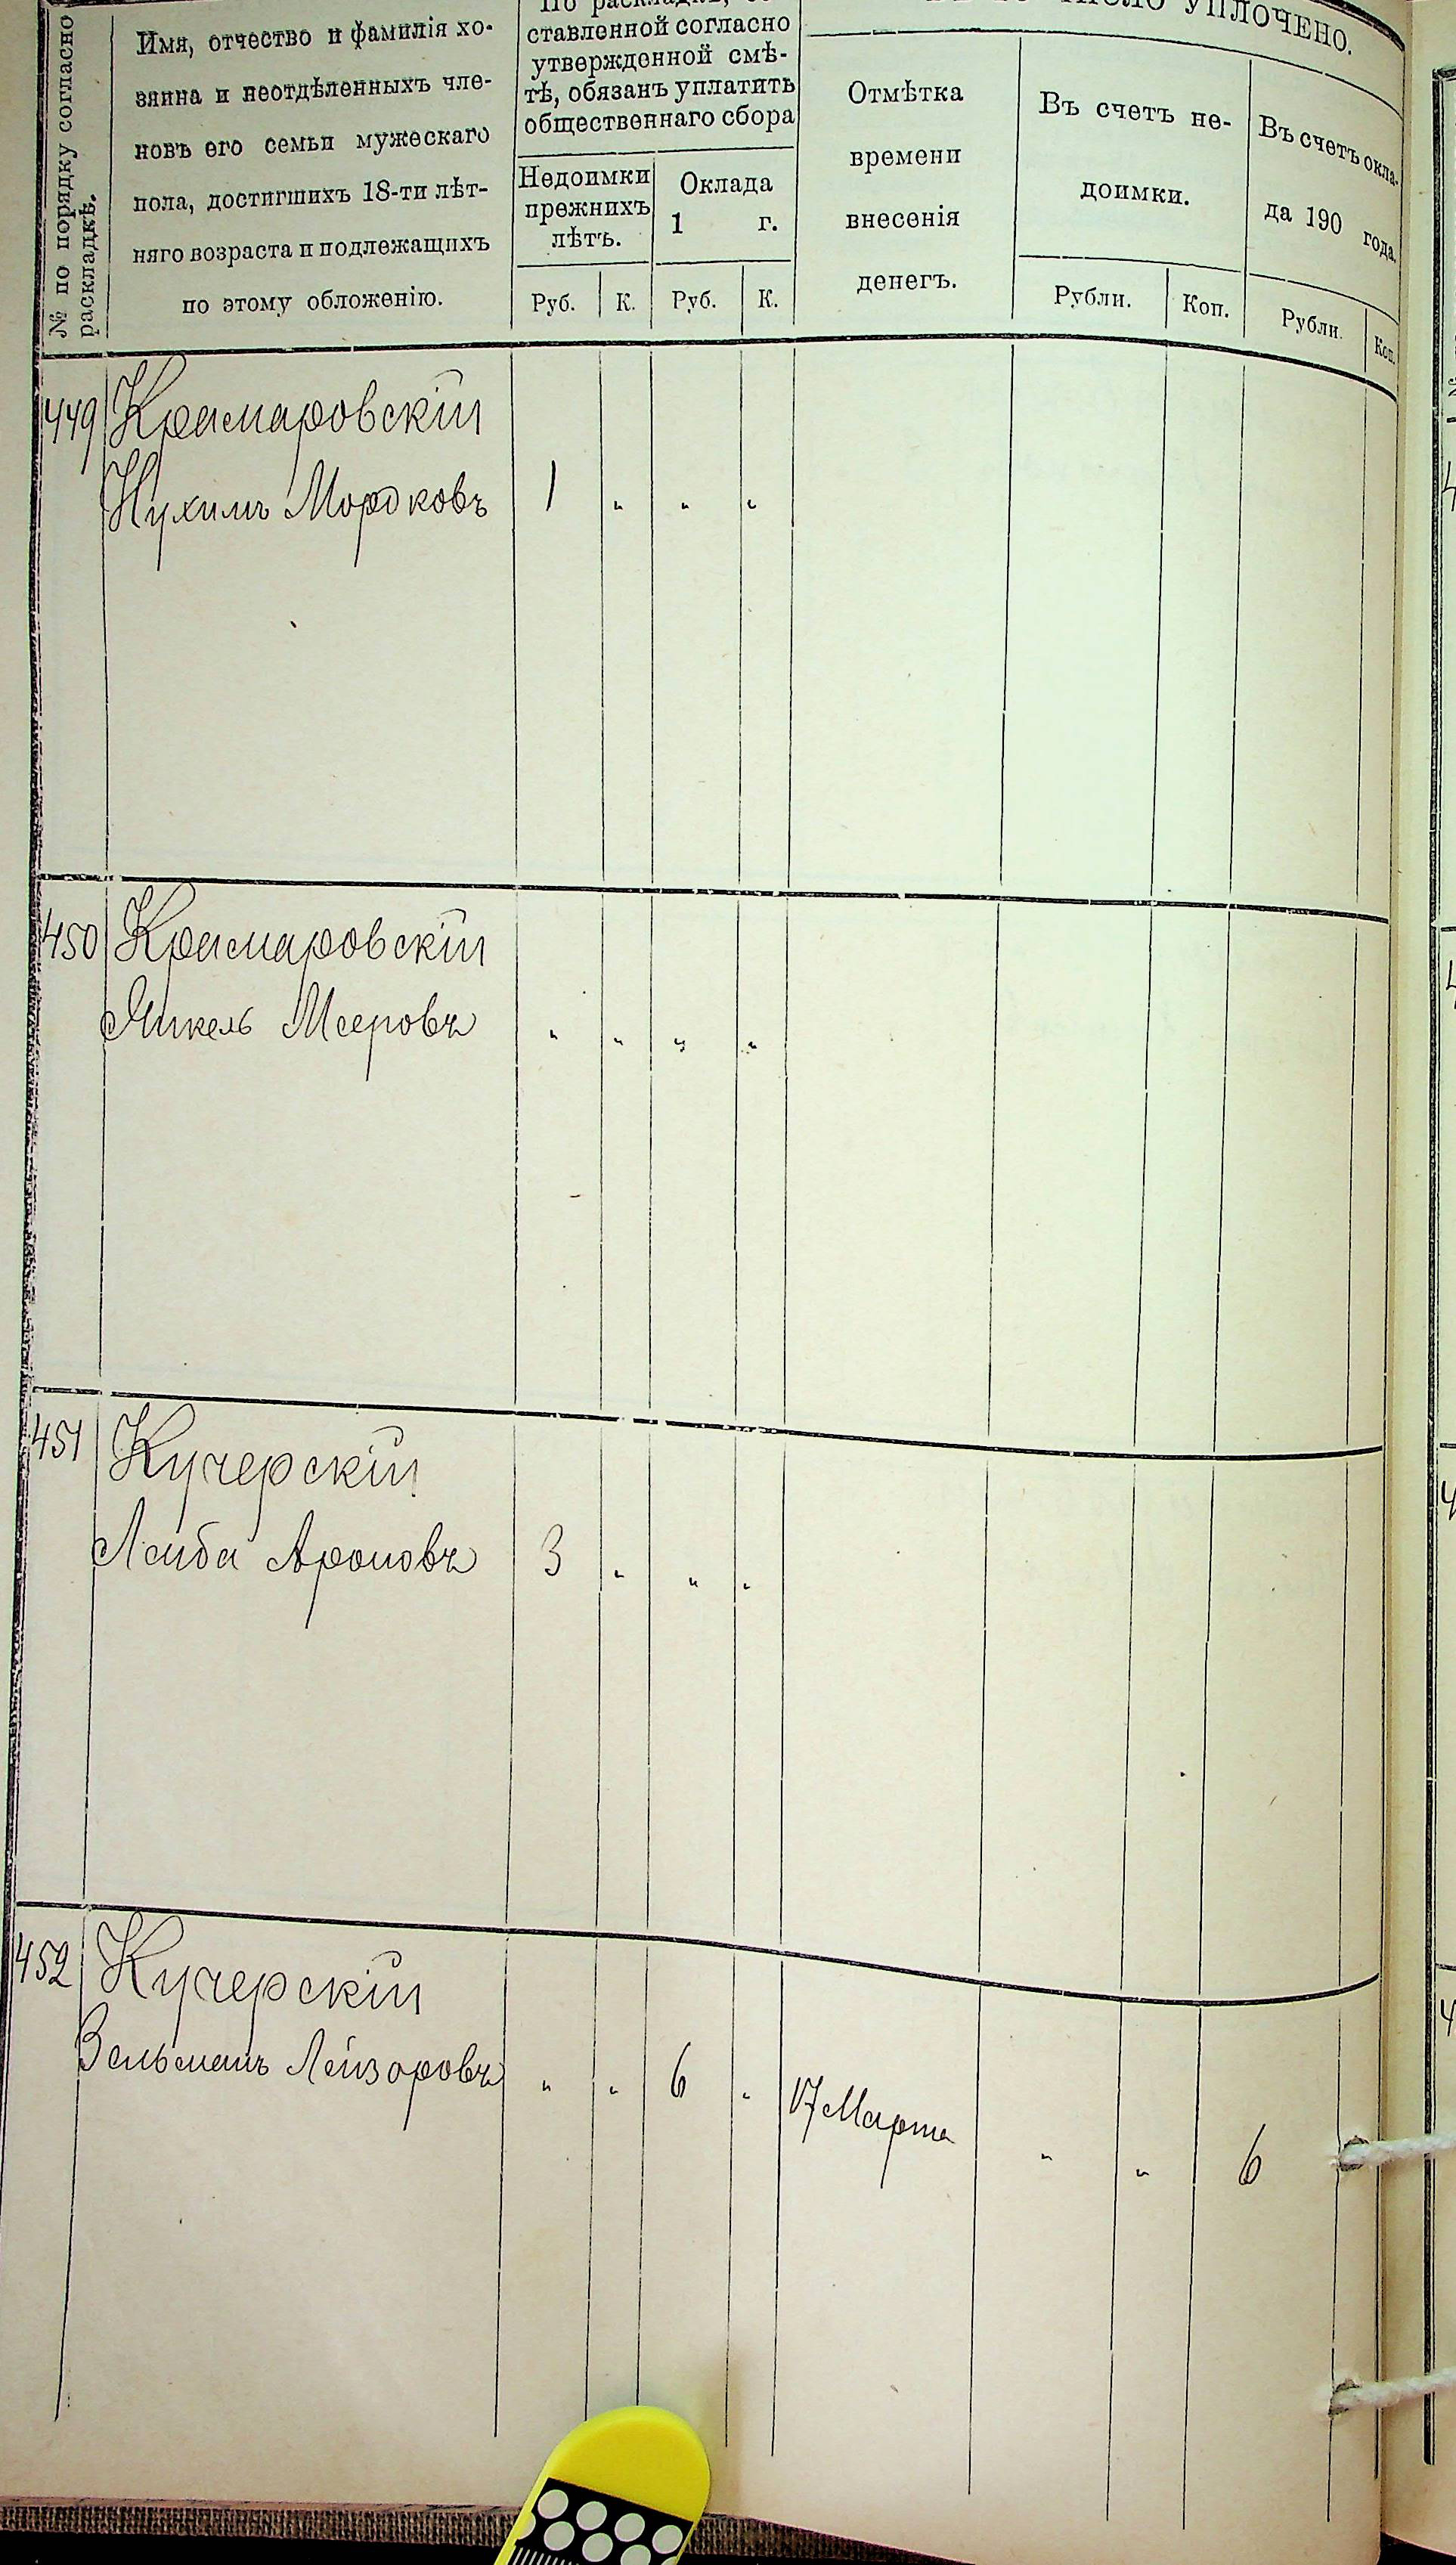 № по порядку согласно
раскладкѣ.
Имя, отчество и фамилія хо-
зяина и неотдѣленныхъ чле-
новъ его семьи мужескаго
пола, достигшихъ 18-ти лѣт-
няго возраста и подлежащихъ
по этому обложенію.
По раскладкѣ, со-
ставленной согласно
утвержденной смѣ-
тѣ, обязанъ уплатить
общественнаго сбора
Недоимки
прежнихъ
лѣтъ.
Оклада
1 г.
Руб. К. Руб. К.
ЧИСЛО УПЛОЧЕНО.
Отмѣтка
времени
внесенія
денегъ.
Въ счетъ не-
доимки.
Рубли. Коп.
Въ счетъ окла-
да 190 года.
Рубли. Коп.
449 Крамаровскій
Нухимъ Мордковъ 1 „ „ „
450 Крамаровскій
Янкель Мееровъ „ „ „ „
451 Кучерскій
Лейба Ароновъ 3 „ „ „
452 Кучерскій
Зельманъ Лейзоровъ „ „ 6 „ 17 Марта „ „ 6